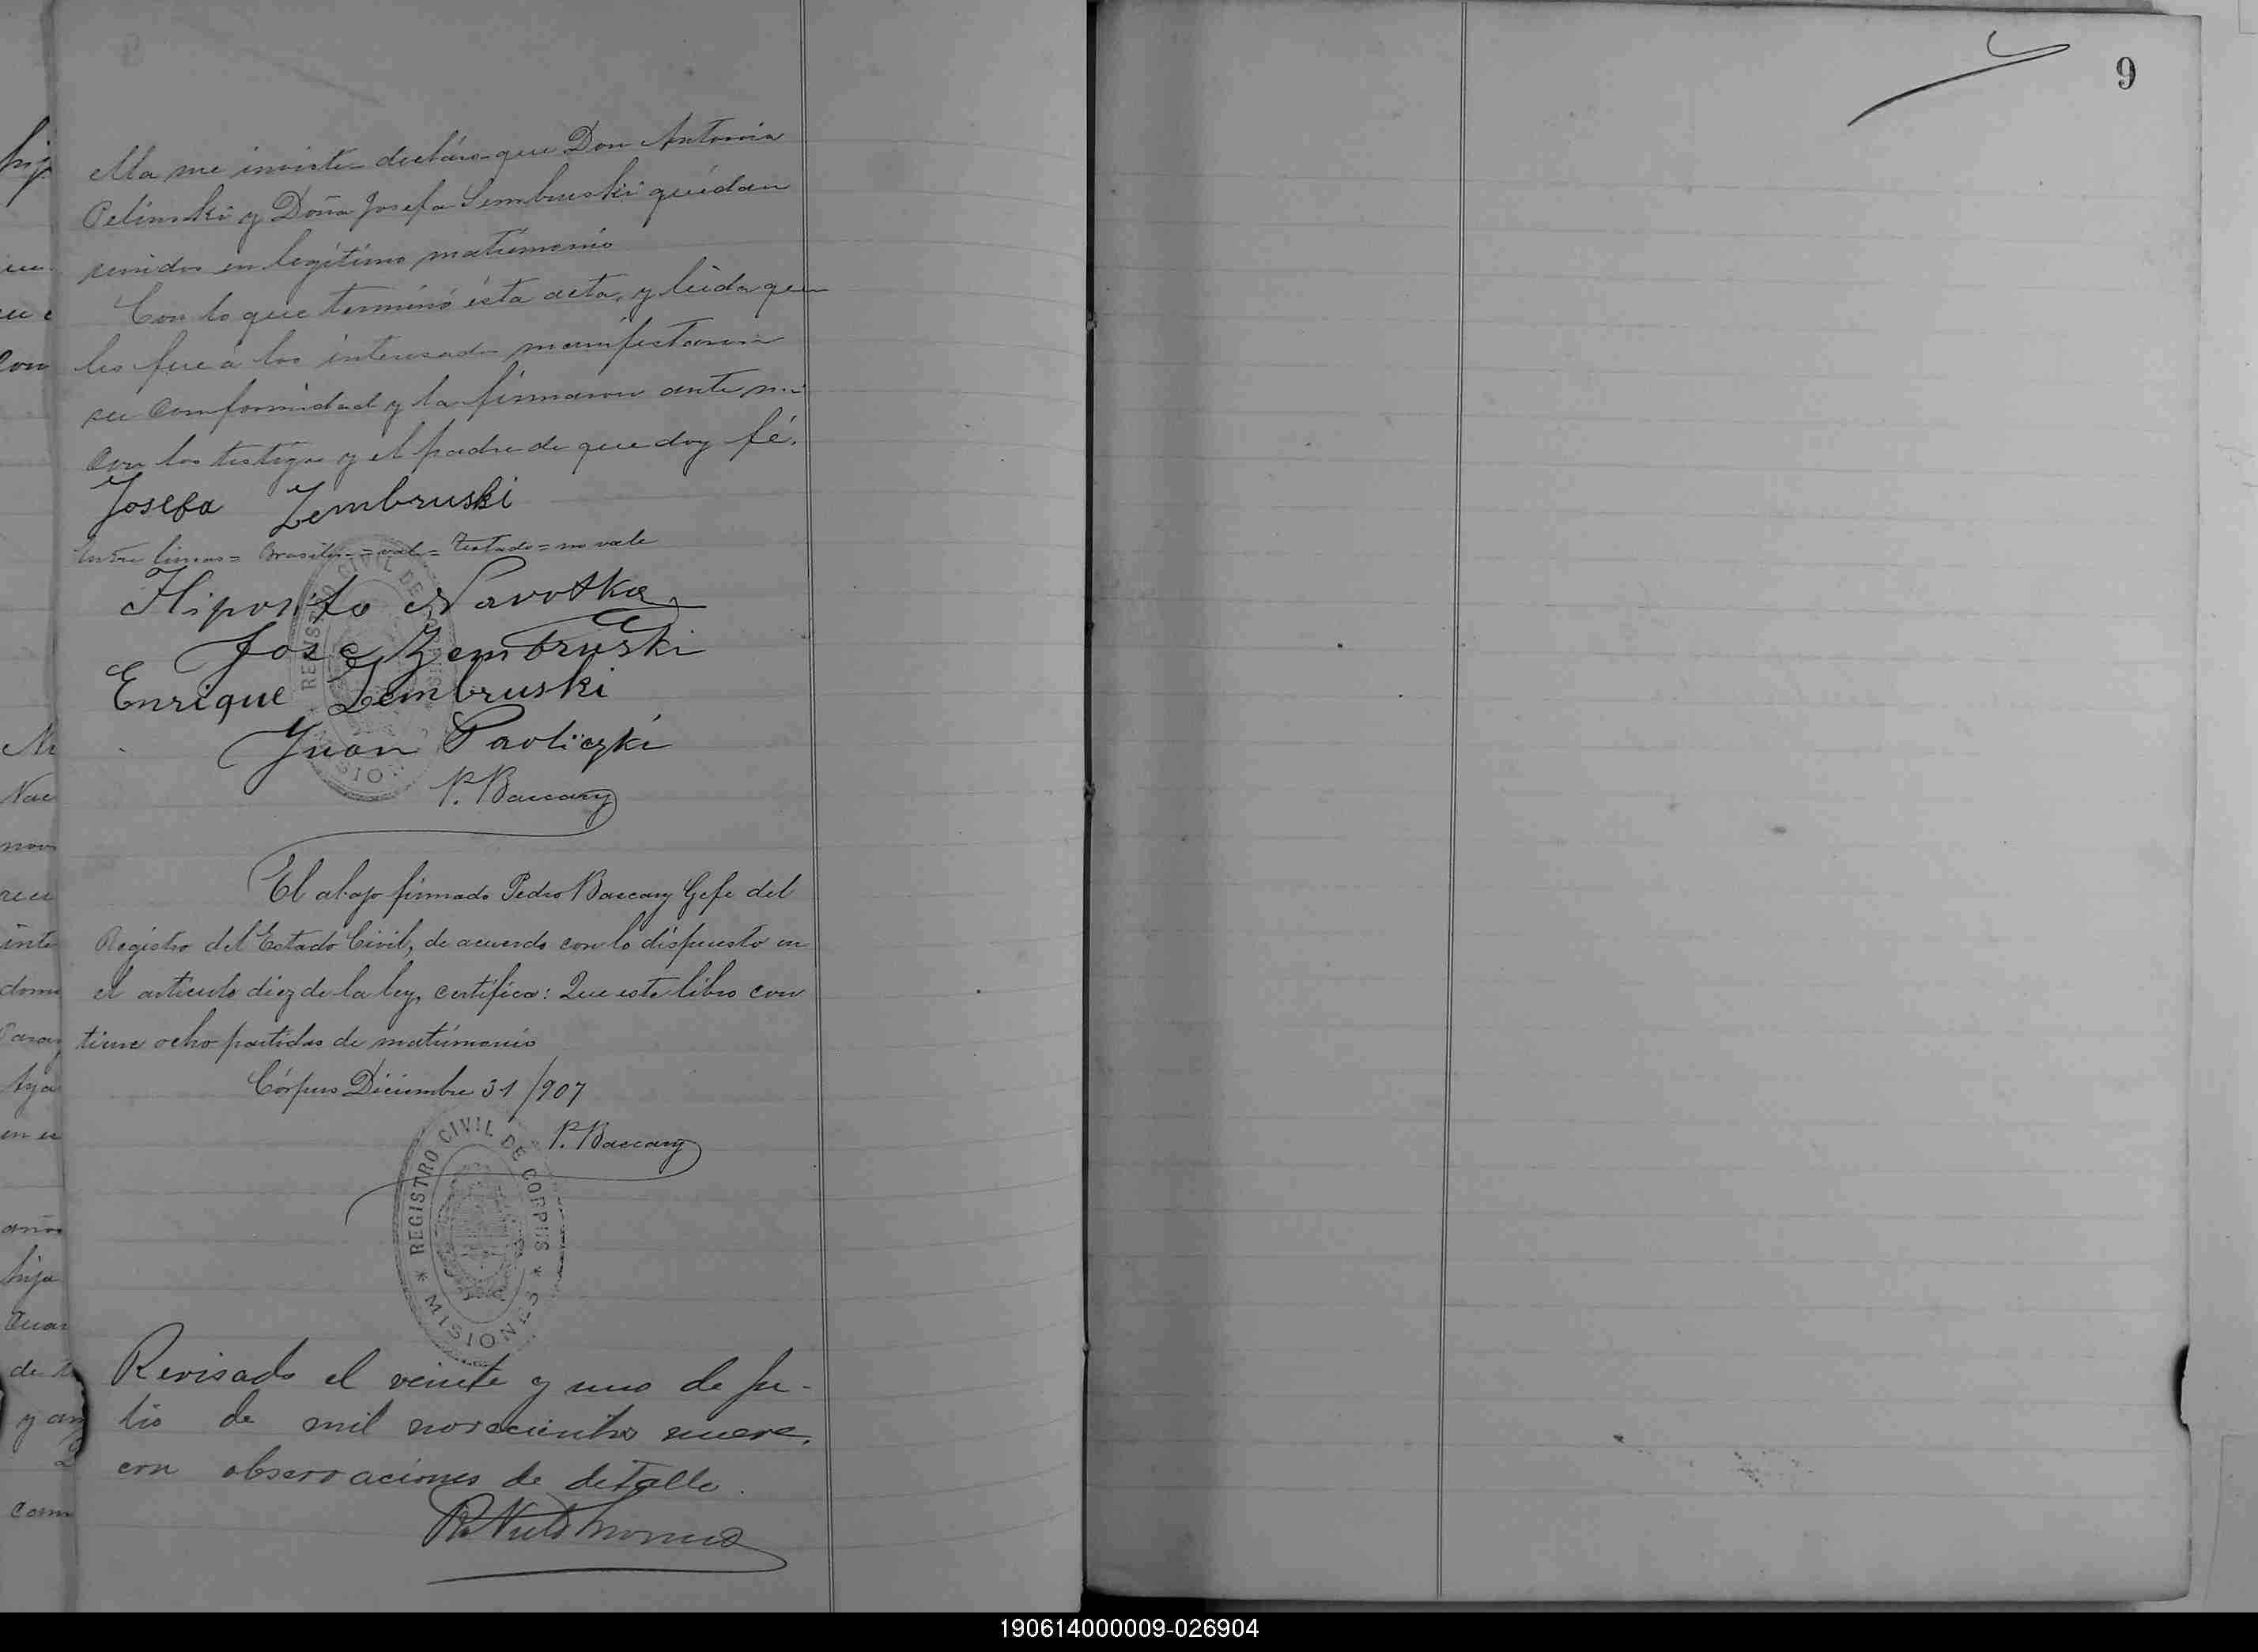 9
ella me inviste declaro que Don Antonio
Pelinski y Doña Josefa Sembruski quédan
unidos en legítimo matrimonio
Con lo que terminó ésta acta, y leida que
les fue á los interesados manifestaron
su conformidad y la firmaron ante mi
con los testigos y el padre de que doy fé.
Josefa Zembruski
Entre lineas = Brasilero = vale = Testado = no vale
Hiposito Navotka
Jose Zembruski
Enrique Zembruski
Juan Pavliczki
P. Baccary
REGISTRO CIVIL DE CORPUS
MISIONES
El abajo firmado Pedro Baccary Gefe del
Registro del Estado Civil, de acuerdo con lo dispuesto en
el articulo diez de la ley, certifica: Que este libro con
tiene ocho partidas de matrimonio
Córpus Diciembre 31/907
P. Baccary
REGISTRO CIVIL DE CORPUS
* MISIONES *
Revisado el veinte y uno de Ju-
lio de mil novecientos nueve,
con observaciones de detalle.
190614000009-026904